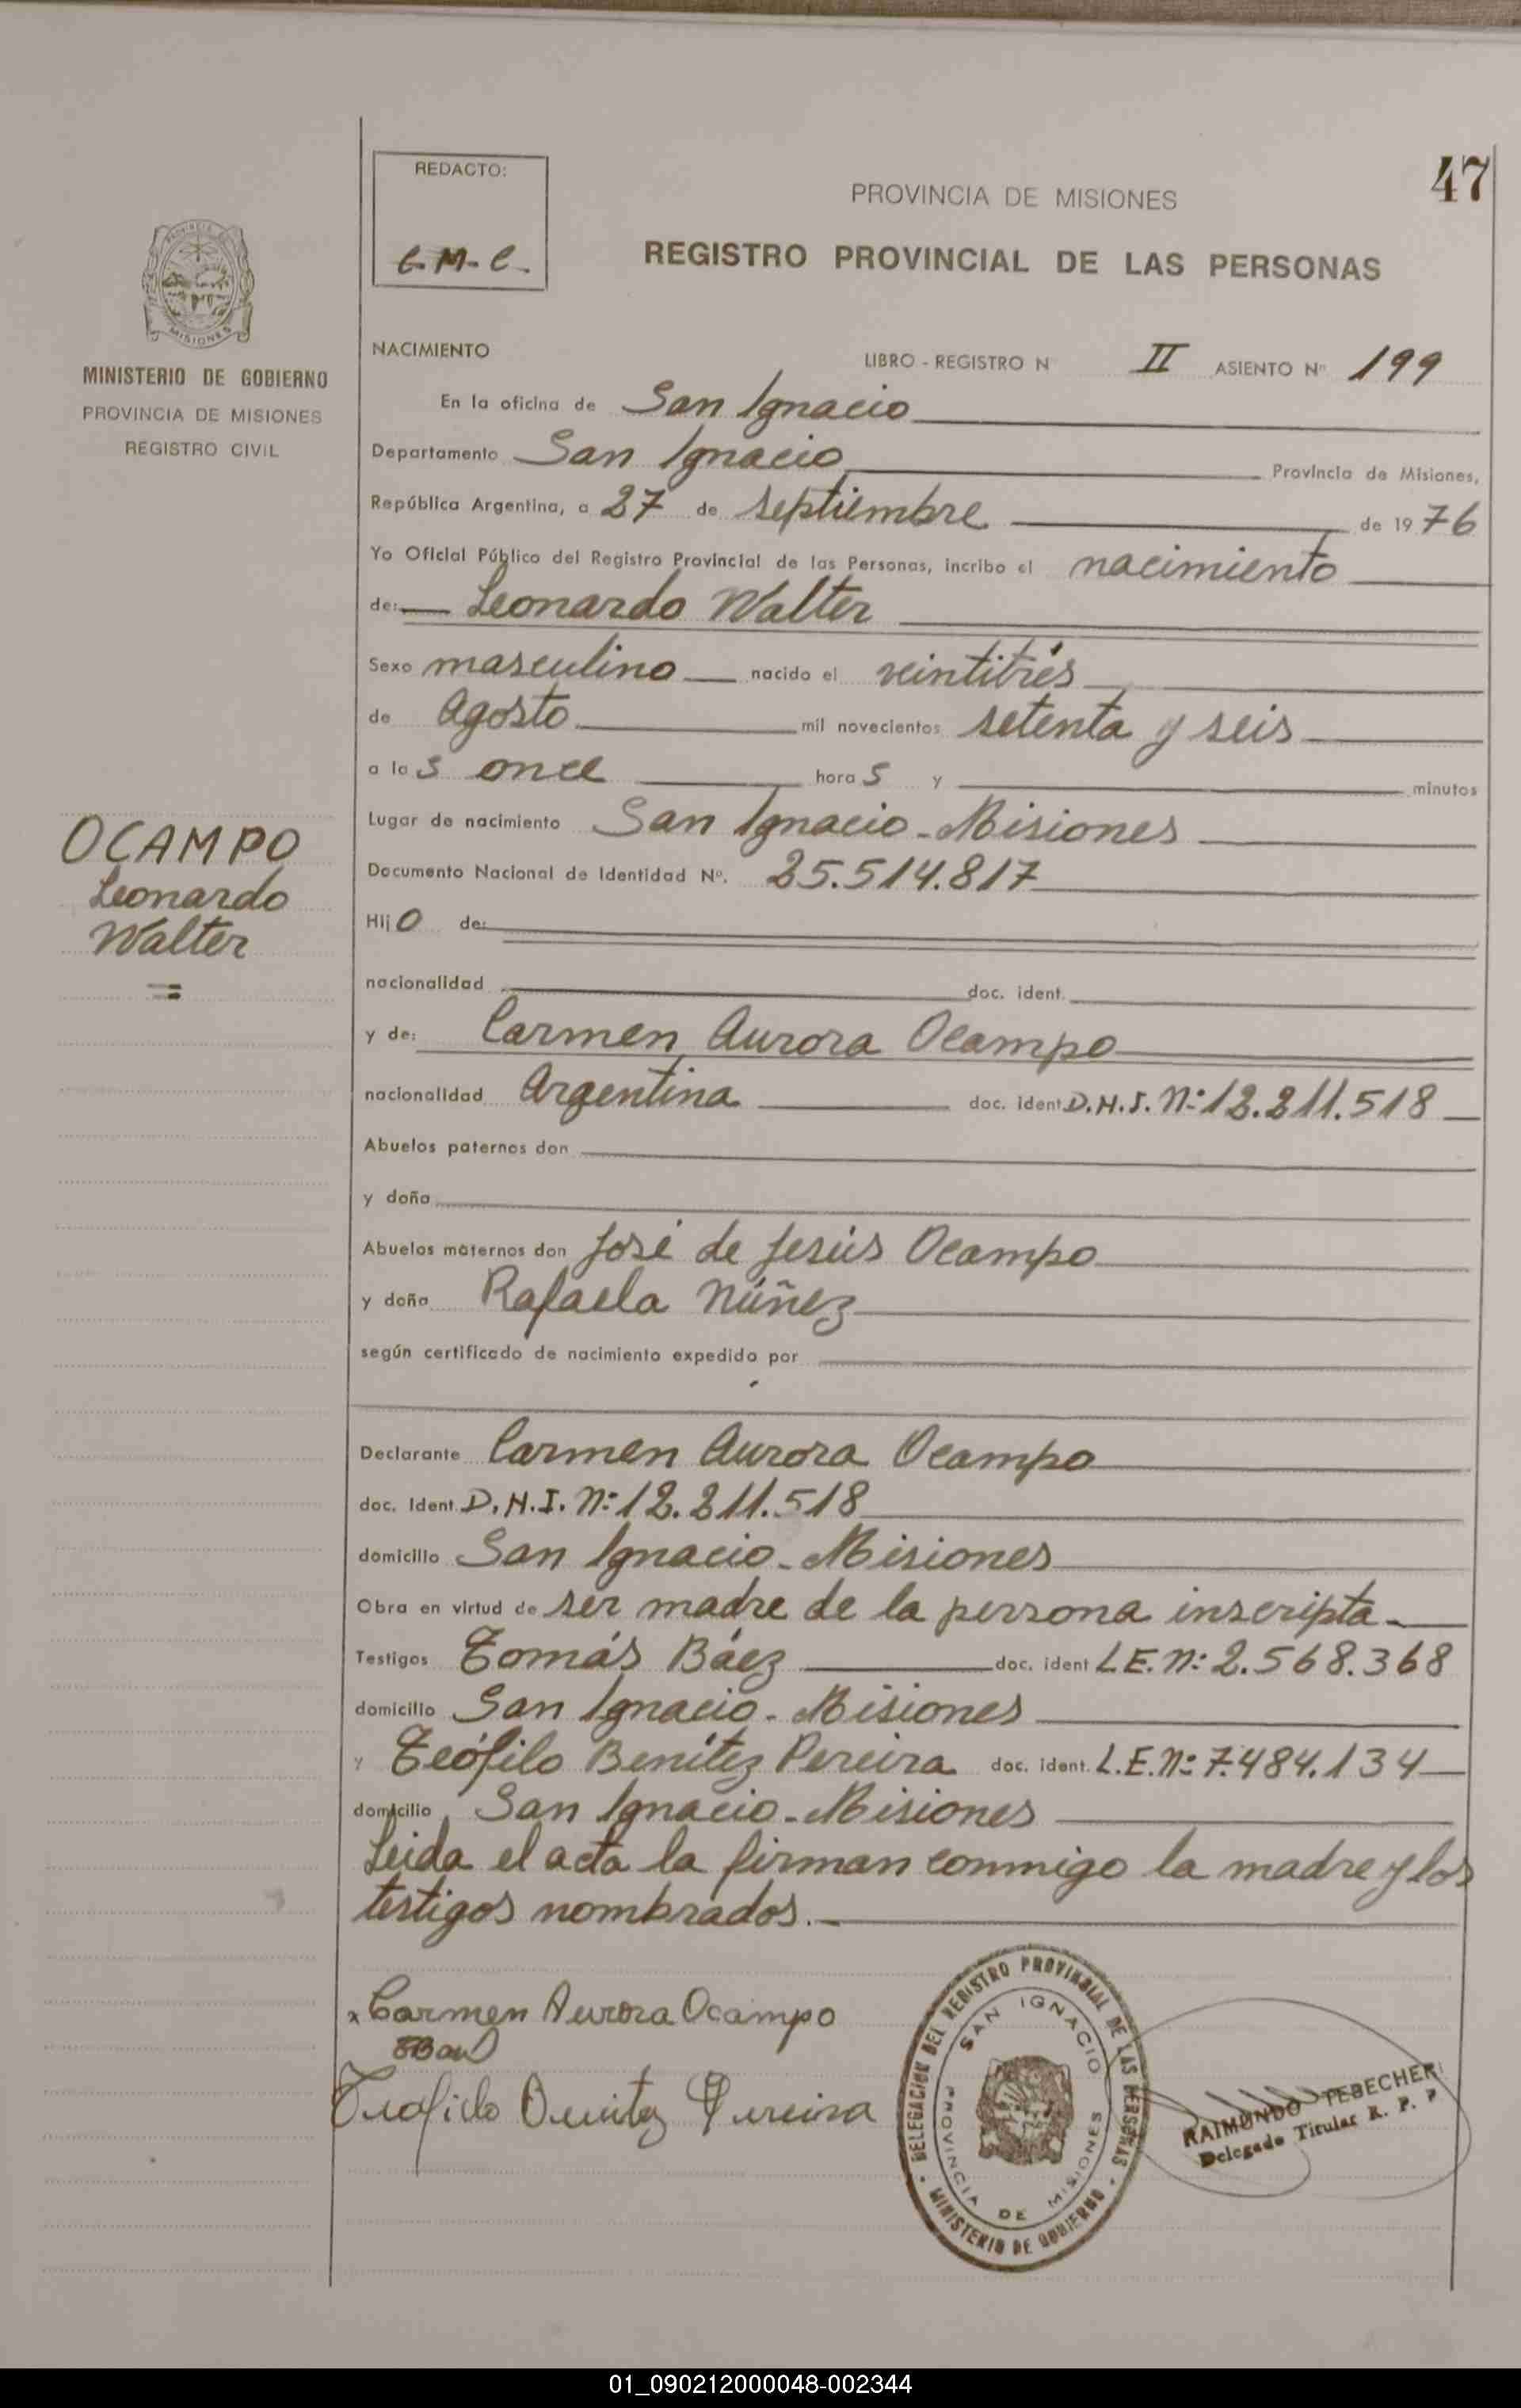 47
REDACTO:
G.M.C.
PROVINCIA DE MISIONES
REGISTRO PROVINCIAL DE LAS PERSONAS
PROVINCIA DE
MISIONES
MINISTERIO DE GOBIERNO
PROVINCIA DE MISIONES
REGISTRO CIVIL
NACIMIENTO
LIBRO - REGISTRO N II ASIENTO Nº 199
En la oficina de San Ignacio
Departamento San Ignacio Provincia de Misiones,
República Argentina, a 27 de septiembre de 1976
Yo Oficial Público del Registro Provincial de las Personas, incribo el nacimiento
de: Leonardo Walter
Sexo masculino nacido el veintitrés
de Agosto mil novecientos setenta y seis
a las once horas y minutos
Lugar de nacimiento San Ignacio - Misiones
OCAMPO
Leonardo
Walter
Documento Nacional de Identidad Nº. 25.514.817
Hijo de:
nacionalidad doc. ident.
y de: Carmen Aurora Ocampo
nacionalidad Argentina doc. ident D.N.I. Nº 12.211.518
Abuelos paternos don
y doña
Abuelos maternos don José de Jesús Ocampo
y doña Rafaela Núñez
según certificado de nacimiento expedido por
Declarante Carmen Aurora Ocampo
doc. Ident. D.N.I. Nº 12.211.518
domicilio San Ignacio - Misiones
Obra en virtud de ser madre de la persona inscripta -
Testigos Tomás Báez doc. ident L.E. Nº 2.568.368
domicilio San Ignacio - Misiones
y Teófilo Benítez Pereira doc. ident. L.E. Nº 7.484.134
domicilio San Ignacio - Misiones
Leida el acta la firman conmigo la madre y los
testigos nombrados.-
x Carmen Aurora Ocampo
Teofilo Benitez Pereira
DELEGACION DEL REGISTRO PROVINCIAL DE LAS PERSONAS
MINISTERIO DE GOBIERNO
SAN IGNACIO
PROVINCIA DE MISIONES
RAIMUNDO TEBECHERI
Delegado Titular R. P. P
01_090212000048-002344